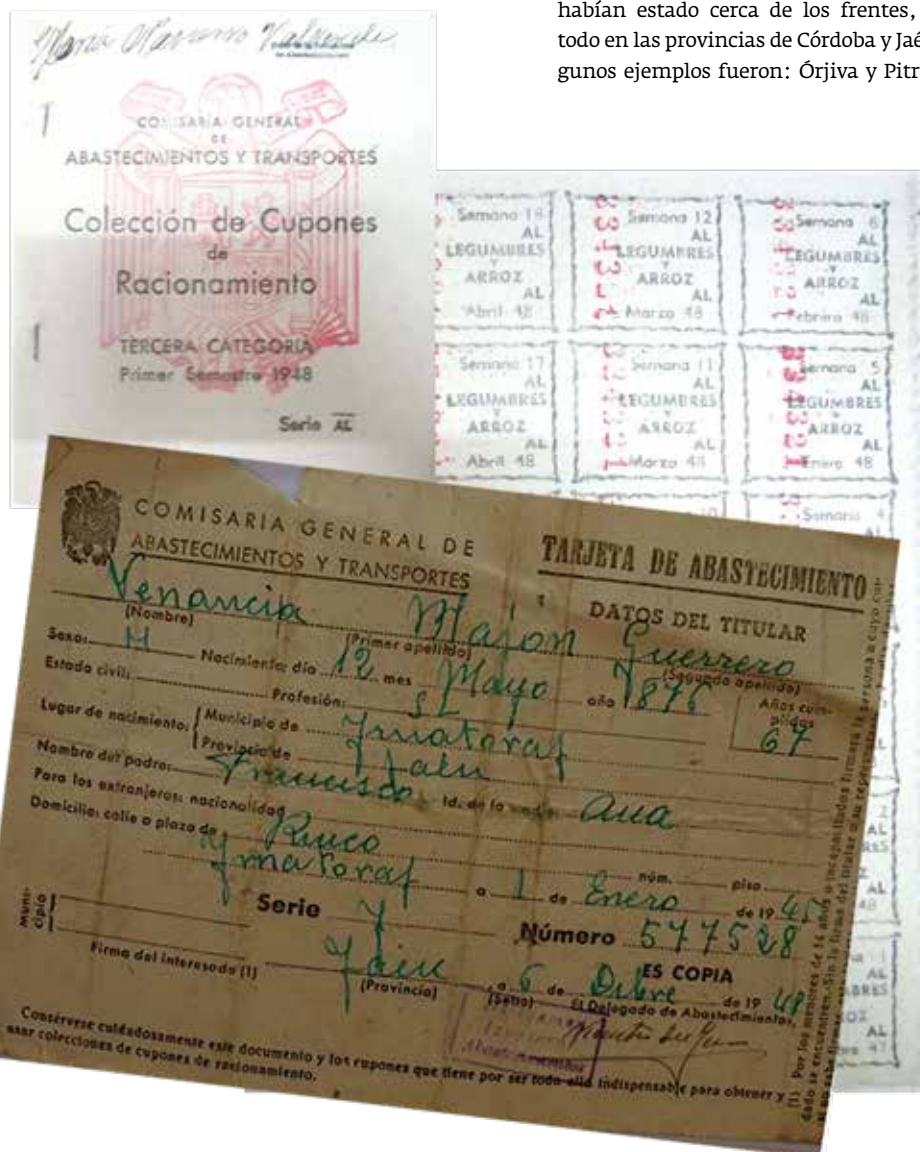 habían estado cerca de los frentes,
todo en las provincias de Córdoba y Jaé
gunos ejemplos fueron: Órjiva y Pitr
COMISARIA GENERAL
DE
ABASTECIMIENTOS Y TRANSPORTES
Colección de Cupones
de
Racionamiento
TERCERA CATEGORIA
Primer Semestre 1948
Serie AL
Semana 18
AL
LEGUMBRES
Y
ARROZ
AL
Abril 48
Semana 12
AL
LEGUMBRES
Y
ARROZ
AL
Marzo 48
Semana 6
AL
LEGUMBRES
Y
ARROZ
AL
Febrero 48
Semana 17
AL
LEGUMBRES
Y
ARROZ
AL
Abril 48
Semana 11
AL
LEGUMBRES
Y
ARROZ
AL
Marzo 48
Semana 5
AL
LEGUMBRES
Y
ARROZ
AL
Enero 48
Semana 4
AL
COMISARIA GENERAL DE
ABASTECIMIENTOS Y TRANSPORTES
TARJETA DE ABASTECIMIENTO
DATOS DEL TITULAR
Venancia Majon Guerrero
(Nombre) (Primer apellido) (Segundo apellido)
Sexo: H Nacimiento: día 12 mes Mayo año 1876
Años cum-
plidos
67
Estado civil: Profesión: S L
Lugar de nacimiento: Municipio de Ynatoraf
Provincia de Jaen
Nombre del padre: Francisco Id. de la madre: Ana
Para los extranjeros: nacionalidad
Domicilio: calle o plaza de núm. piso
Ynatoraf a 1 de Enero de 19 45
Muni-
cipio
Serie Y Número 577528
ES COPIA
Firma del interesado (1)
Jaen a 6 de Dcbre de 19 48
(Provincia) (Sello) El Delegado de Abastecimientos,
Consérvese cuidadosamente este documento y los cupones que tiene por ser todo ello indispensable para obtener y
usar colecciones de cupones de racionamiento.
(1) Por los menores de 14 años o incapacitados firmará la persona a cuyo cui-
dado se encuentren. Sin la firma del titular o su representante